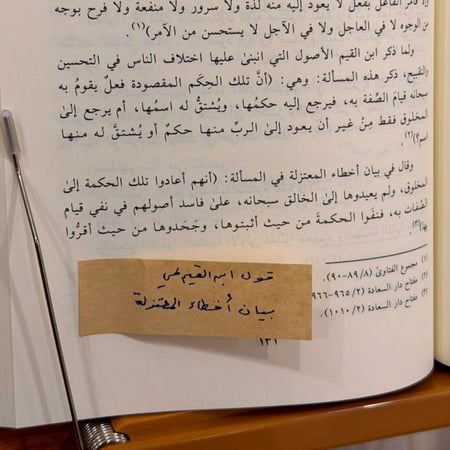 إذا أمر الفاعل بفعل لا يعود إليه منه لذة ولا سرور ولا منفعة ولا فرح بوجه
من الوجوه لا في العاجل ولا في الآجل لا يستحسن من الآمر)(١).
ولما ذكر ابن القيم الأصول التي انبنىٰ عليها اختلاف الناس في التحسين
والتقبيح، ذكر هذه المسألة: وهي: (أنَّ تلك الحِكَم المقصودة فعلٌ يقومُ به
سبحانه قيامُ الصِّفة به، فيرجع إليه حكمُها، ويُشتقُّ له اسمُها، أم يرجع إلىٰ
المخلوق فقط مِنْ غير أن يعود إلىٰ الربِّ منها حكمٌ أو يُشتقَّ له منها
اسم؟)(٢).
وقال في بيان أخطاء المعتزلة في المسألة: (أنهم أعادوا تلك الحكمة إلىٰ
المخلوق، ولم يعيدوها إلىٰ الخالق سبحانه، علىٰ فاسد أصولهم في نفي قيام
الصِّفات به، فنفَوا الحكمةَ من حيث أثبتوها، وجَحَدوها من حيث أقرُّوا
بها)(٣).
(١) مجموع الفتاوىٰ (٨/ ٨٩-٩٠).
(٢) مفتاح دار السعادة (٢/ ٩٦٥-٩٦٦
(٣) مفتاح دار السعادة (٢/ ١٠١٠).
قول ابن القيم في
بيان أخطاء المعتزلة
١٣١